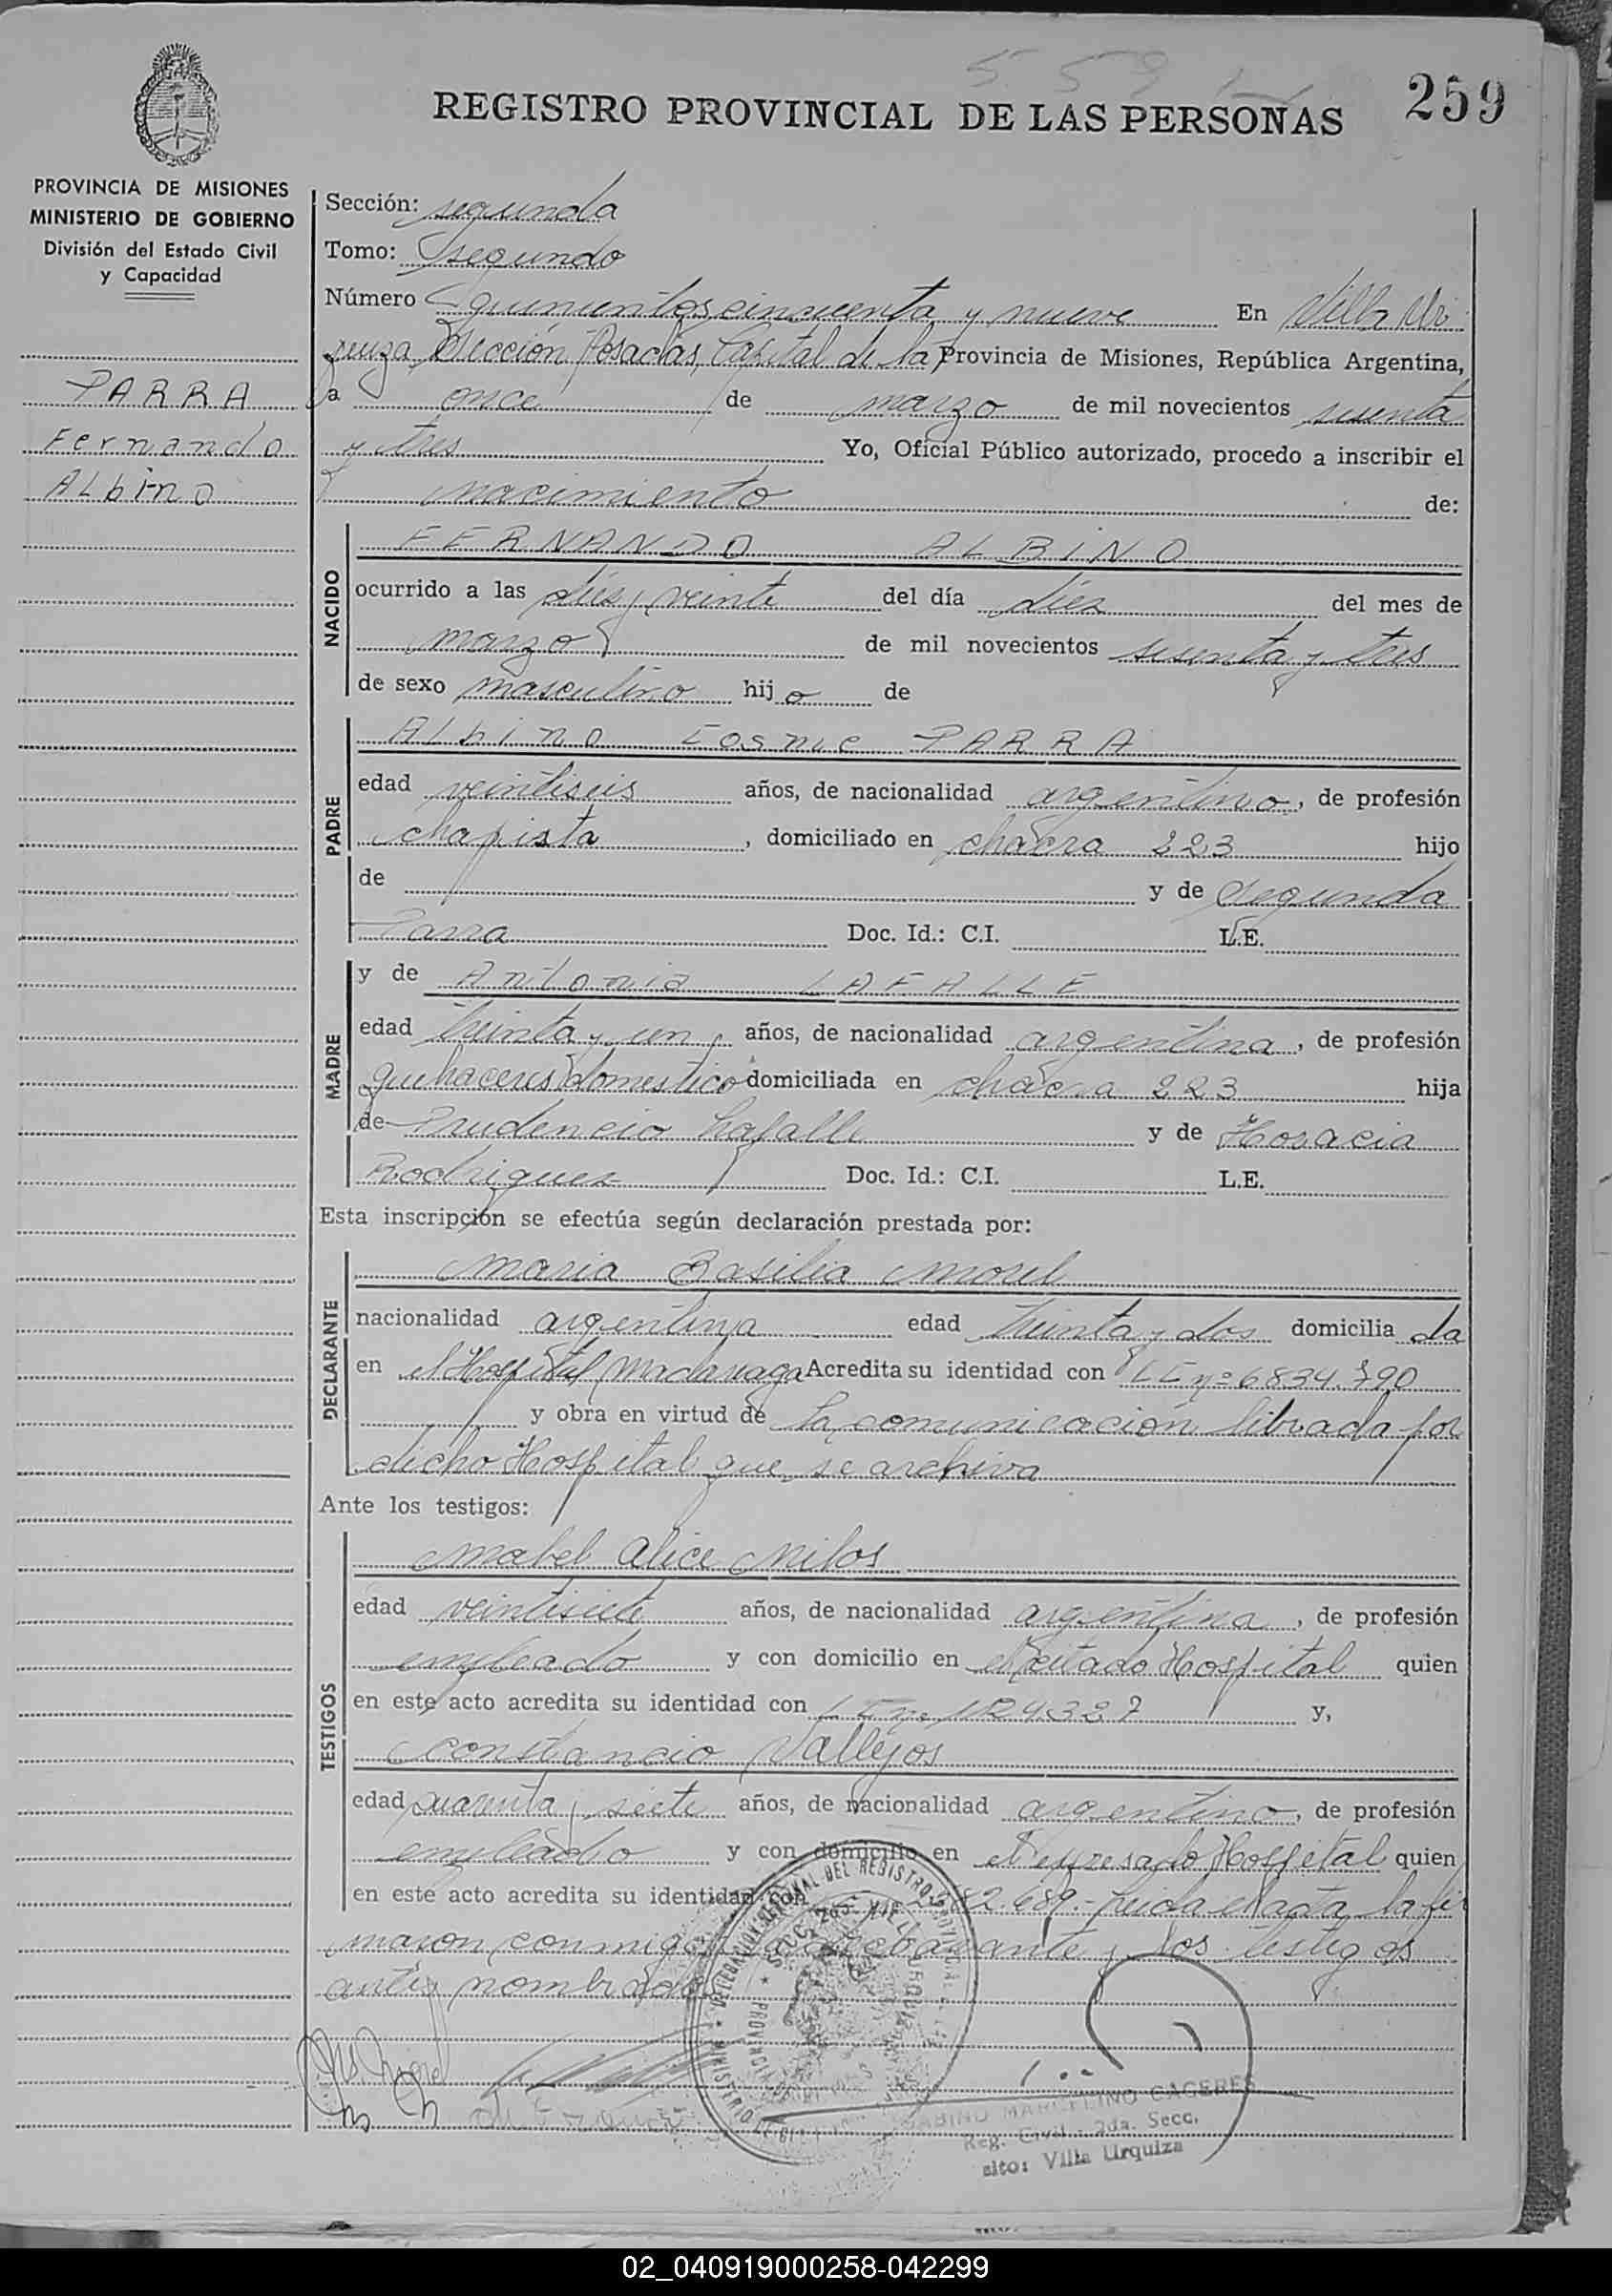 559
259
REGISTRO PROVINCIAL DE LAS PERSONAS
PROVINCIA DE MISIONES
MINISTERIO DE GOBIERNO
División del Estado Civil
y Capacidad
PARRA
Fernando
Albino
Sección: segunda
Tomo: segundo
Número quinientos cincuenta y nueve En Villa Ur
quiza Sección Posadas, Capital de la Provincia de Misiones, República Argentina,
a once de marzo de mil novecientos sesenta
y tres Yo, Oficial Público autorizado, procedo a inscribir el
nacimiento de:
NACIDO
FERNANDO ALBINO
ocurrido a las dies y veinte del día diez del mes de
marzo de mil novecientos sesenta y tres
de sexo masculino hijo de
PADRE
Albino Cosme PARRA
edad veintiseis años, de nacionalidad argentino, de profesión
chapista, domiciliado en chacra 223 hijo
de y de Segunda
Parra Doc. Id.: C.I. L.E.
MADRE
y de Antonia LAFALLE
edad treinta y un años, de nacionalidad argentina, de profesión
quehaceres domestico domiciliada en chacra 223 hija
de Prudencio Lafalle y de Horacia
Rodriguez Doc. Id.: C.I. L.E.
Esta inscripción se efectúa según declaración prestada por:
DECLARANTE
Maria Basilia Morel
nacionalidad argentina edad treinta y dos domiciliada
en el Hospital Madariaga Acredita su identidad con LE nº 6834.790
y obra en virtud de la comunicación librada por
dicho Hospital que se archiva
Ante los testigos:
TESTIGOS
Mabel Alice Milos
edad veintisiete años, de nacionalidad argentina, de profesión
empleado y con domicilio en el citado Hospital quien
en este acto acredita su identidad con y,
Constancio Vallejos
edad cuarenta y siete años, de nacionalidad argentino, de profesión
empleado y con domicilio en el expresado Hospital quien
en este acto acredita su identidad con 82.689.- Leida el acta la fir
maron conmigo los testigos
antes nombrados
SABINO MARCELINO CACERES
Reg. Civil - 2da. Secc.
sito: Villa Urquiza
02_040919000258-042299